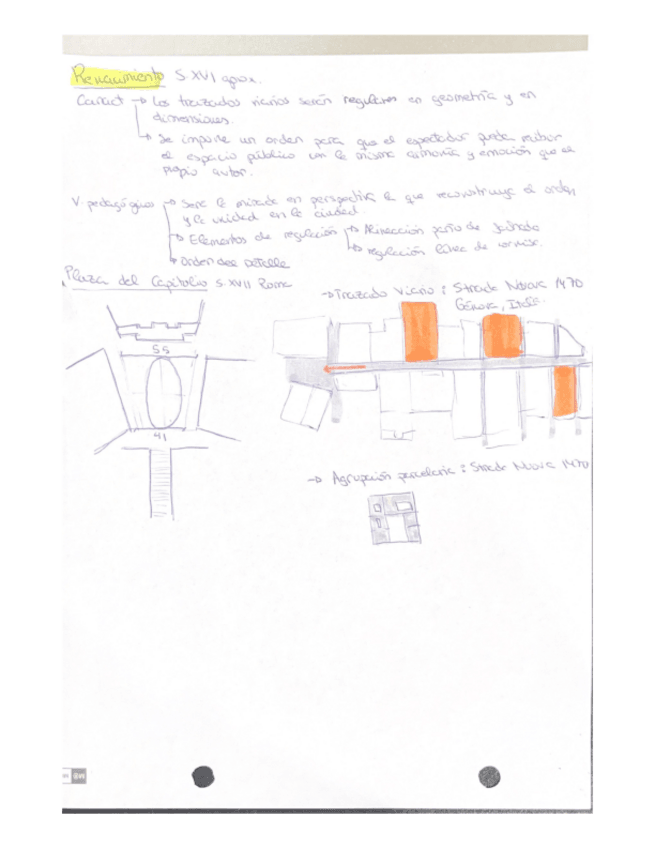 Renacimiento S.XVI aprox.
Caract → Los trazados viarios serán regulares en geometría y en
dimensiones.
↳ Se impone un orden para que el espectador pueda recibir
el espacio público con la misma armonía y emoción que el
propio autor.
V. pedagógicos → Será la mirada en perspectiva la que reconstruye el orden
y la unidad en la ciudad.
→ Elementos de regulación → Alineación paño de fachada
→ regulación línea de cornisa.
→ Orden del Detalle
Plaza del Capitolio S.XVII Roma
→ Trazado Viario: Strada Nuova 1470
Génova, Italia
55
41
→ Agrupación parcelaria: Strada Nuova 1470